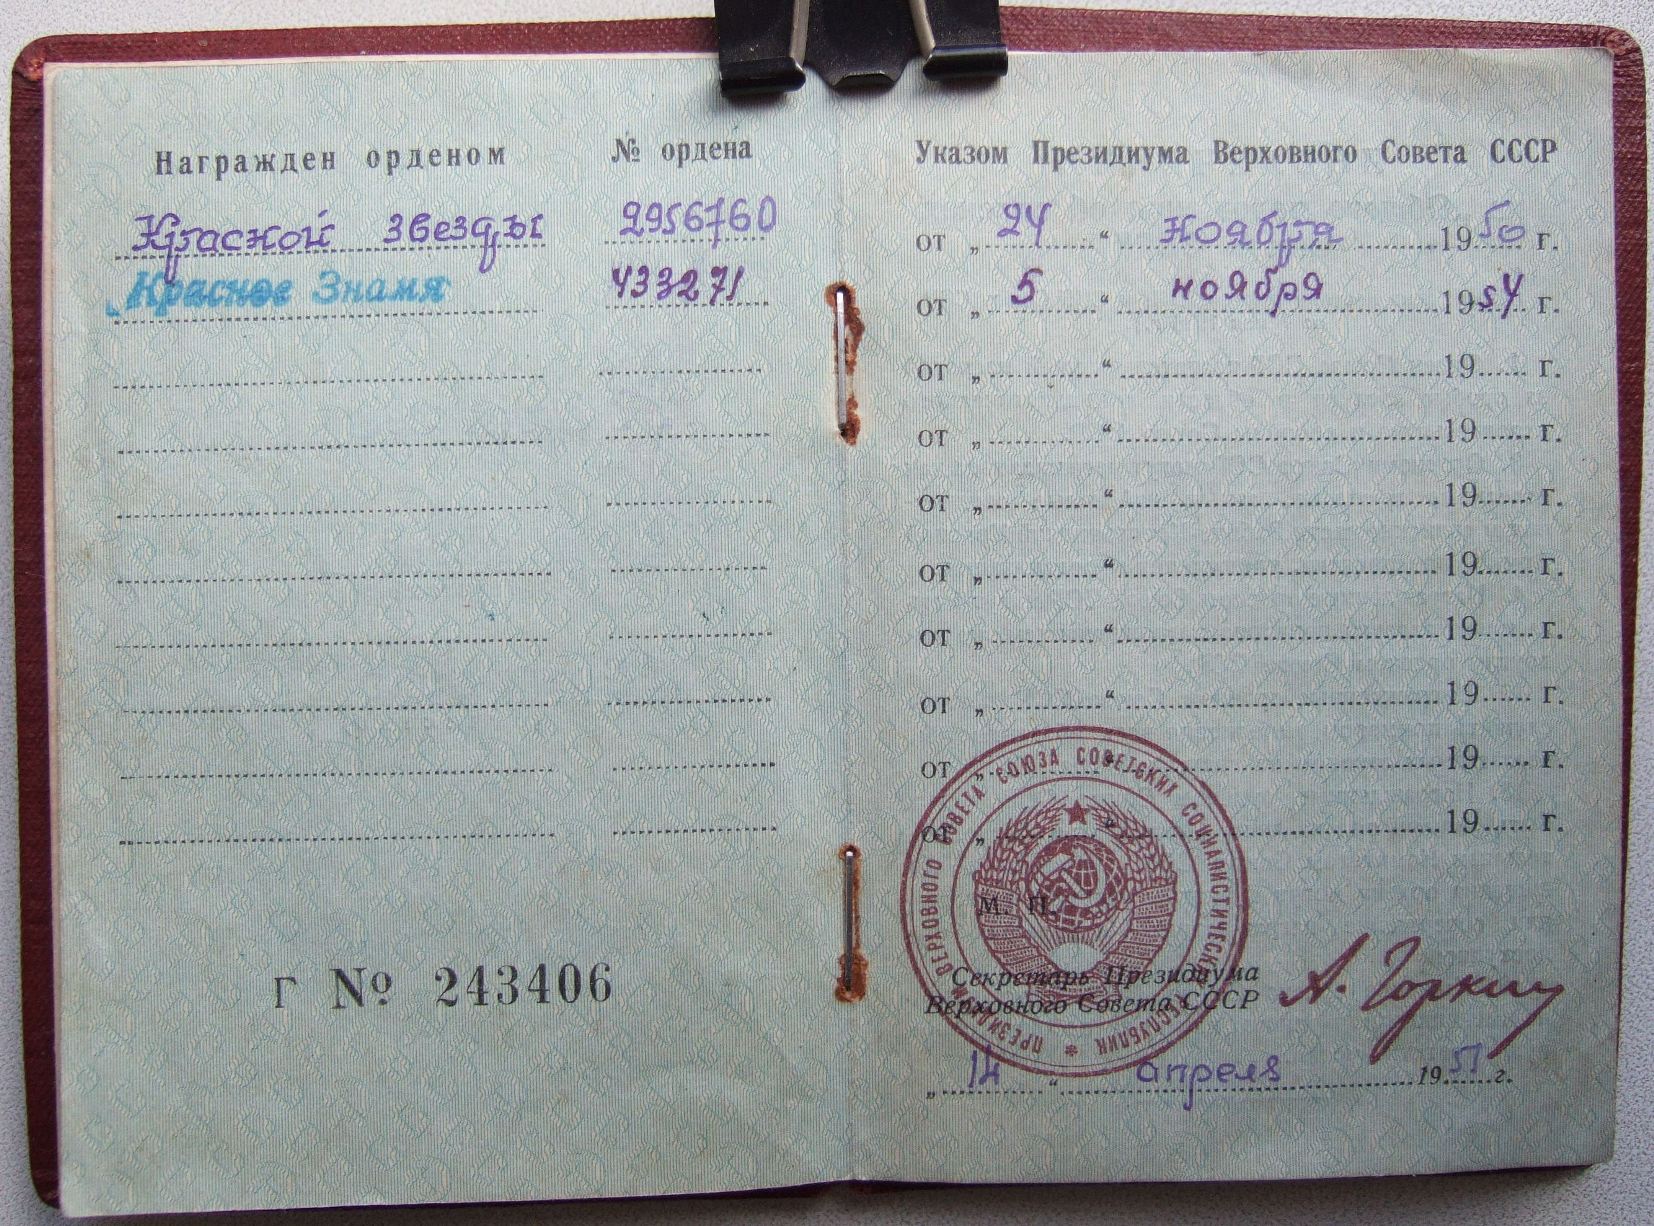 Награжден орденом № ордена
Красной звезды 2956760
Красное Знамя 433271
Г № 243406
Указом Президиума Верховного Совета СССР
от „ 24 “ ноября 1950 г.
от „ 5 “ ноября 1954 г.
от „ “ 19 г.
от „ “ 19 г.
от „ “ 19 г.
от „ “ 19 г.
от „ “ 19 г.
от „ “ 19 г.
от „ “ 19 г.
от „ “ 19 г.
ПРЕЗИДИУМ ВЕРХОВНОГО СОВЕТА СОЮЗА СОВЕТСКИХ СОЦИАЛИСТИЧЕСКИХ РЕСПУБЛИК
М. П.
Секретарь Президиума
Верховного Совета СССР
А. Горкин
„ 14 “ апреля 1951 г.